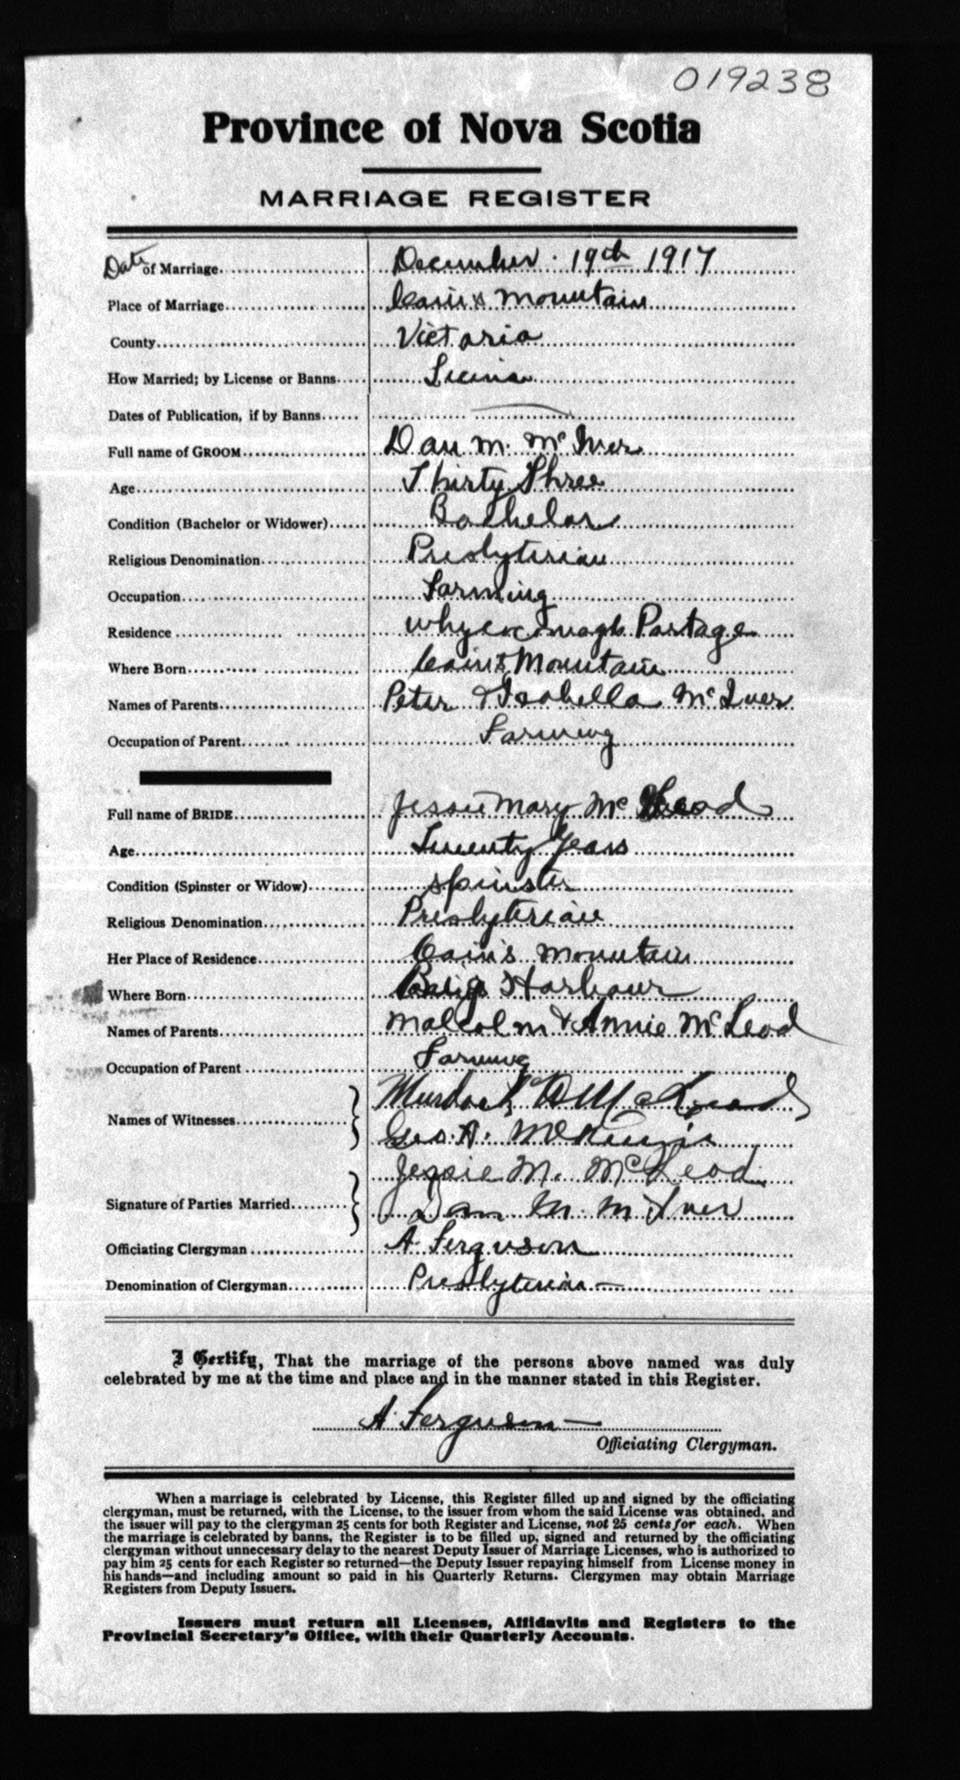 019238
Province of Nova Scotia
MARRIAGE REGISTER
Date of Marriage December 19th 1917
Place of Marriage Cain's Mountain
County Victoria
How Married; by License or Banns License
Dates of Publication, if by Banns
Full name of GROOM Dan M. McIver
Age Thirty Three
Condition (Bachelor or Widower) Bachelor
Religious Denomination Presbyterian
Occupation Farming
Residence Whycocomagh Portage
Where Born Cain's Mountain
Names of Parents Peter & Isabella McIver
Occupation of Parent Farming
Full name of BRIDE Jessie Mary McLeod
Age Twenty Years
Condition (Spinster or Widow) Spinster
Religious Denomination Presbyterian
Her Place of Residence Cain's Mountain
Where Born Harbour
Names of Parents Malcolm & Annie McLeod
Occupation of Parent Farming
Names of Witnesses Murdock D McLeod
Geo. A. McKenzie
Jessie M. McLeod
Signature of Parties Married Dan M. McIver
Officiating Clergyman A. Ferguson
Denomination of Clergyman Presbyterian
I Certify, That the marriage of the persons above named was duly
celebrated by me at the time and place and in the manner stated in this Register.
A. Ferguson
Officiating Clergyman.
When a marriage is celebrated by License, this Register filled up and signed by the officiating
clergyman, must be returned, with the License, to the issuer from whom the said License was obtained, and
the issuer will pay to the clergyman 25 cents for both Register and License, not 25 cents for each. When
the marriage is celebrated by banns, the Register is to be filled up, signed and returned by the officiating
clergyman without unnecessary delay to the nearest Deputy Issuer of Marriage Licenses, who is authorized to
pay him 25 cents for each Register so returned—the Deputy Issuer repaying himself from License money in
his hands—and including amount so paid in his Quarterly Returns. Clergymen may obtain Marriage
Registers from Deputy Issuers.
Issuers must return all Licenses, Affidavits and Registers to the
Provincial Secretary's Office, with their Quarterly Accounts.